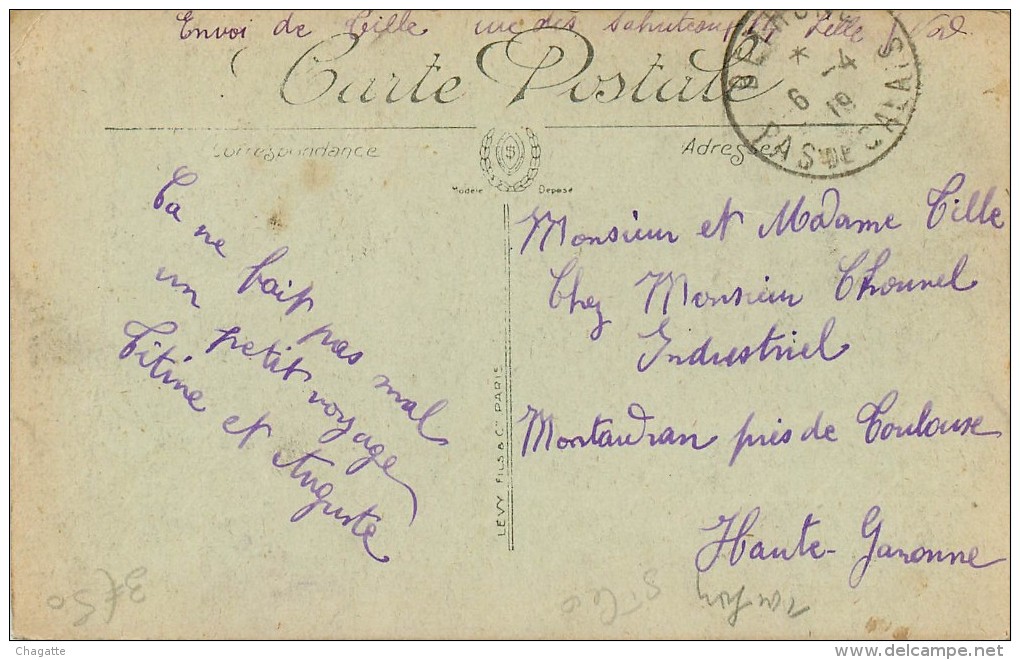 Envoi de Tille rue des Sahuteaux Lille Nord
Carte Postale
Correspondance
Adresse
PAS DE CALAIS
* 1-4
6 19
Modèle Déposé
Ca ne fait pas mal
un petit voyage
Titine et Auguste
LEVY FILS & Cie PARIS
Monsieur et Madame Tille
Chez Monsieur Thounel
Industriel
Montaudran près de Toulouse
Haute-Garonne
3f50
Chagatte
www.delcampe.net